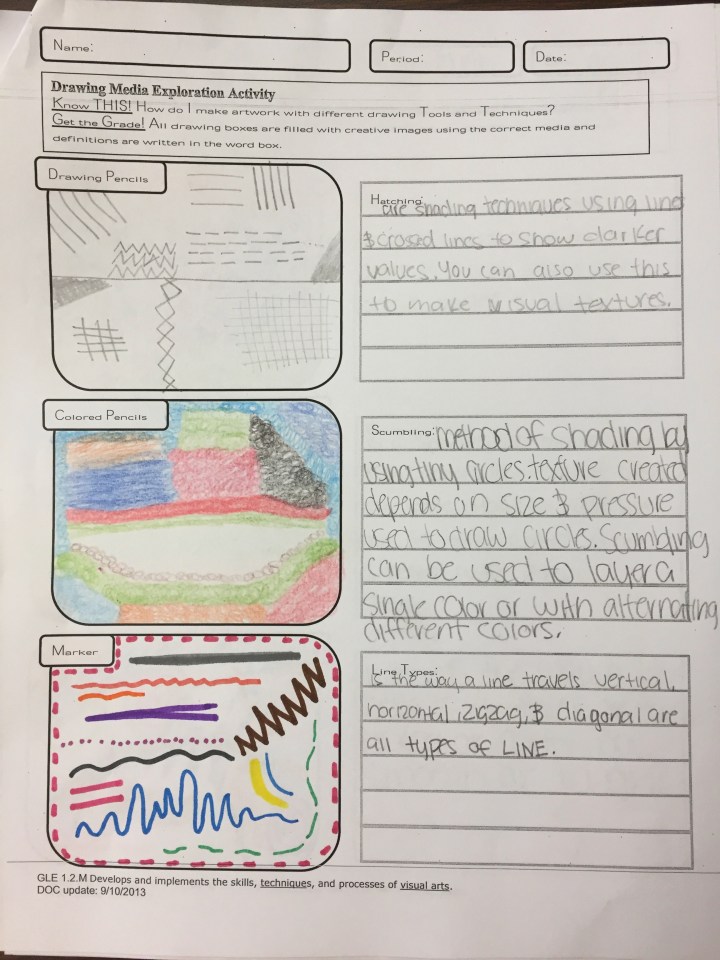 Name:
Period:
Date:
Drawing Media Exploration Activity
Know THIS! How do I make artwork with different drawing Tools and Techniques?
Get the Grade! All drawing boxes are filled with creative images using the correct media and
definitions are written in the word box.
Drawing Pencils
Hatching:
are shading techniques using line
& crosed lines to show darker
values. You can also use this
to make visual textures.
Colored Pencils
Scumbling: method of shading by
using tiny circles. texture created
depends on size & pressure
used to draw circles. Scumbling
can be used to layer a
single color or with alternating
different colors.
Marker
Line Types:
is the way a line travels vertical,
horizontal, zigzag, & diagonal are
all types of LINE.
GLE 1.2.M Develops and implements the skills, techniques, and processes of visual arts.
DOC update: 9/10/2013